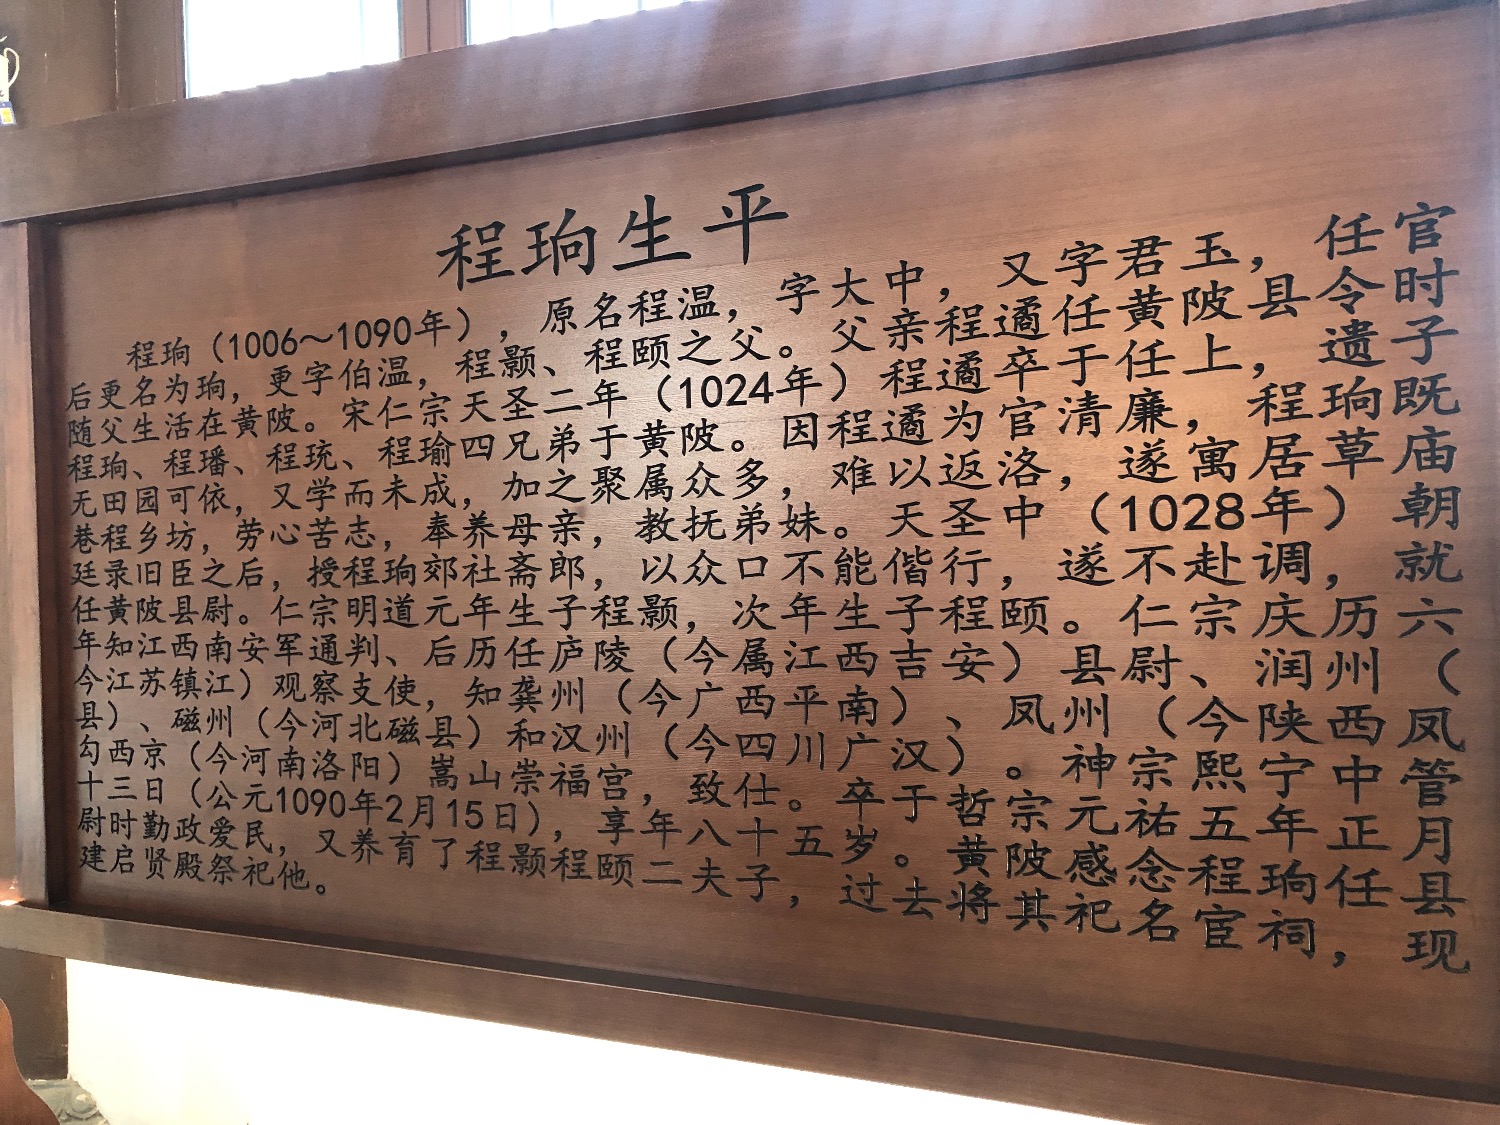 程珦生平
程珦（1006～1090年），原名程温，字大中，又字君玉，任官
后更名为珦，更字伯温，程颢、程颐之父。父亲程遹任黄陂县令时
随父生活在黄陂。宋仁宗天圣二年（1024年）程遹卒于任上，遗子
程珦、程璠、程琉、程瑜四兄弟于黄陂。因程遹为官清廉，程珦既
无田园可依，又学而未成，加之聚属众多，难以返洛，遂寓居草庙
巷程乡坊，劳心苦志，奉养母亲，教抚弟妹。天圣中（1028年）朝
廷录旧臣之后，授程珦郊社斋郎，以众口不能偕行，遂不赴调，就
任黄陂县尉。仁宗明道元年生子程颢，次年生子程颐。仁宗庆历六
年知江西南安军通判、后历任庐陵（今属江西吉安）县尉、润州（
今江苏镇江）观察支使，知龚州（今广西平南）、凤州（今陕西凤
县）、磁州（今河北磁县）和汉州（今四川广汉）。神宗熙宁中管
勾西京（今河南洛阳）嵩山崇福宫，致仕。卒于哲宗元祐五年正月
十三日（公元1090年2月15日），享年八十五岁。黄陂感念程珦任县
尉时勤政爱民，又养育了程颢程颐二夫子，过去将其祀名宦祠，现
建启贤殿祭祀他。